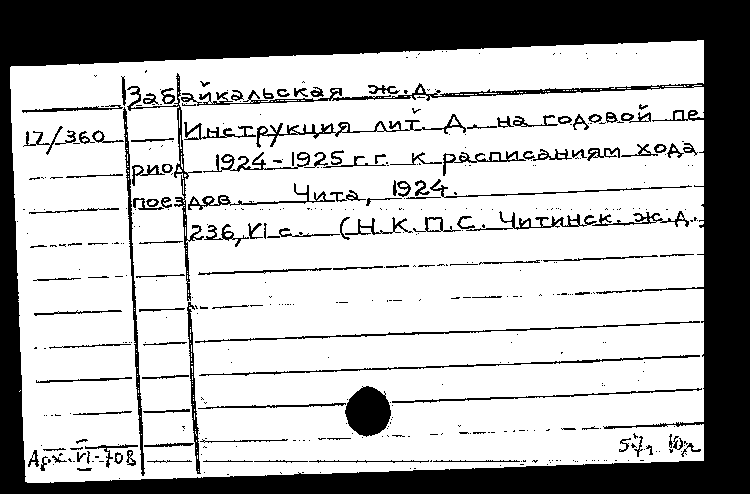 Забайкальская ж.д.
17/360 Инструкция лит. Д. на годовой пе
риод 1924-1925 г.г. к расписаниям хода
поездов. Чита, 1924.
236, VI с. (Н.К.П.С. Читинск. ж.д.)
Арх. VI-70В